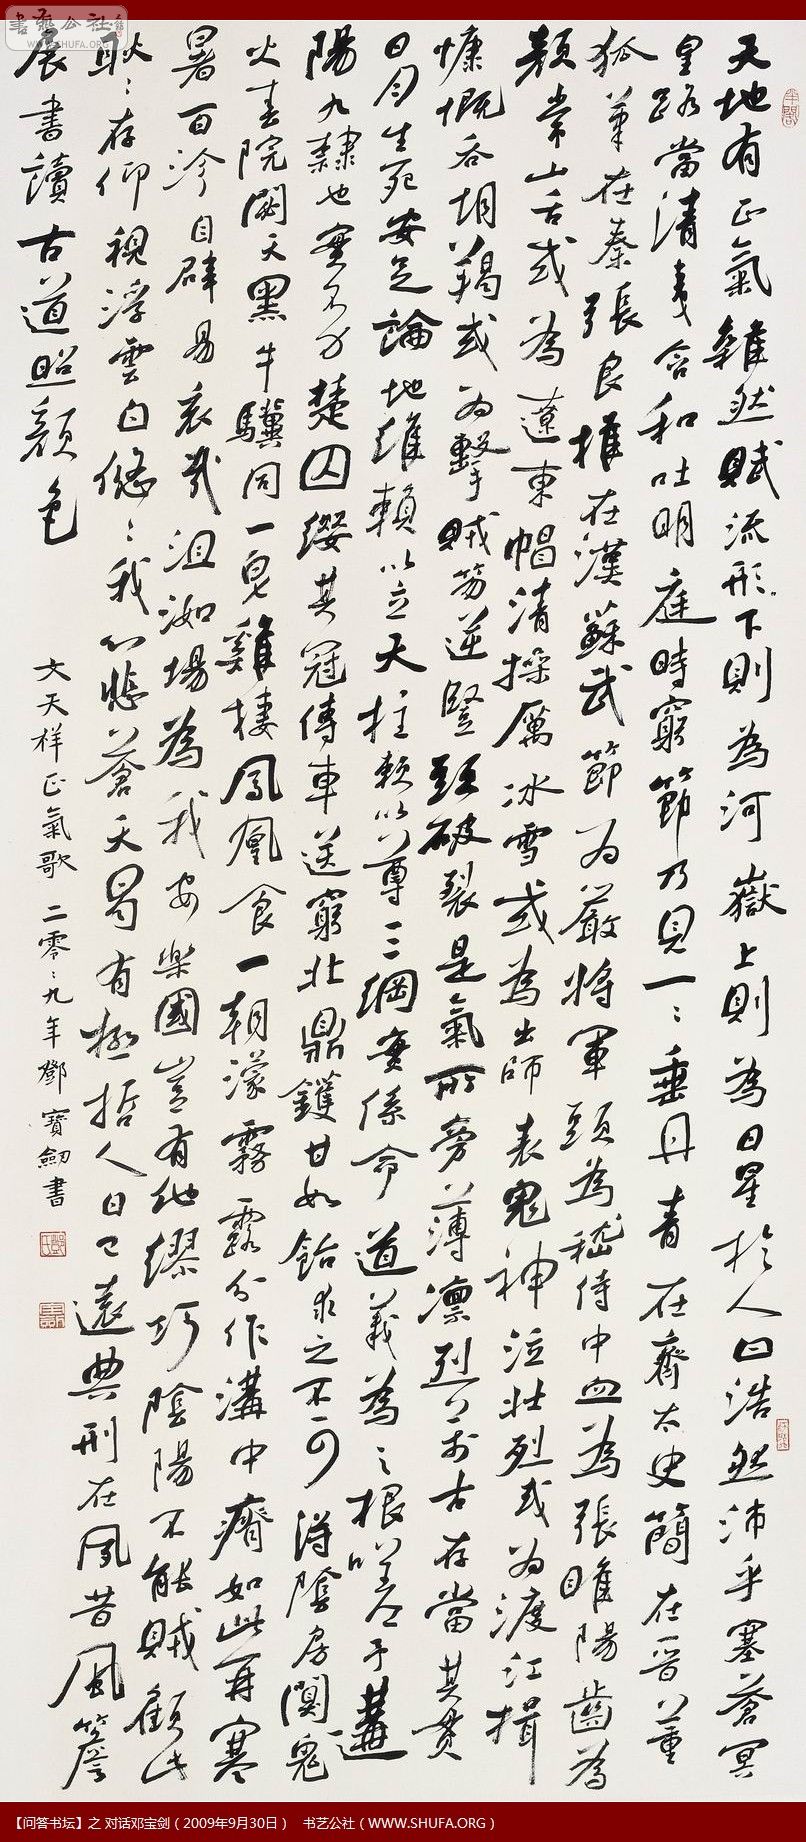 書艺公社
WWW.SHUFA.ORG
天地有正氣雜然賦流形下則為河嶽上則為日星於人曰浩然沛乎塞蒼冥
皇路當清夷含和吐明庭時窮節乃見一〻垂丹青在齊太史簡在晉董
狐筆在秦張良椎在漢蘇武節為嚴將軍頭為嵇侍中血為張睢陽齒為
顏常山舌或為遼東帽清操厲冰雪或為出師表鬼神泣壯烈或為渡江楫
慷慨吞胡羯或為擊賊笏逆豎頭破裂是氣所旁薄凜烈萬古存當其貫
日月生死安足論地維賴以立天柱賴以尊三綱實係命道義為之根嗟予遘
陽九隸也實不力楚囚纓其冠傳車送窮北鼎鑊甘如飴求之不可得陰房闃鬼
火春院閟天黑牛驥同一皂雞棲鳳凰食一朝濛霧露分作溝中瘠如此再寒
暑百沴自辟易哀哉沮洳場為我安樂國豈有他繆巧陰陽不能賊顧此
耿〻存仰視浮雲白悠〻我心悲蒼天曷有極哲人日已遠典刑在夙昔風簷
展書讀古道照顏色
文天祥正氣歌 二零〻九年鄧寶劍書
【问答书坛】之 对话邓宝剑（2009年9月30日） 书艺公社（WWW.SHUFA.ORG）